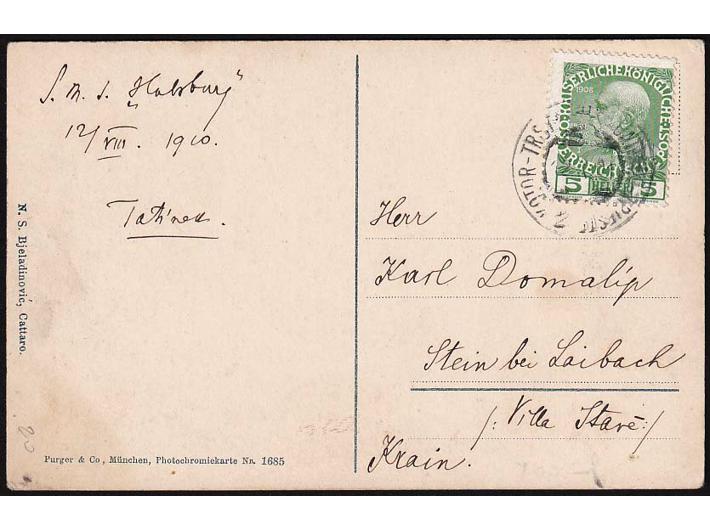 S. M. S. „Habsburg"
12/VIII. 1910.
N. S. Bjeladinović, Cattaro.
Purger & Co., München, Photochromiekarte Nr. 1685
KAISERLICHE KÖNIGLICHE ÖSTERREICHISCHE POST
1908
5 HELLER 5
KOTOR-TRST
2
Herr
Karl Domalip
Stein bei Laibach
/: Villa Staré :/
Krain.